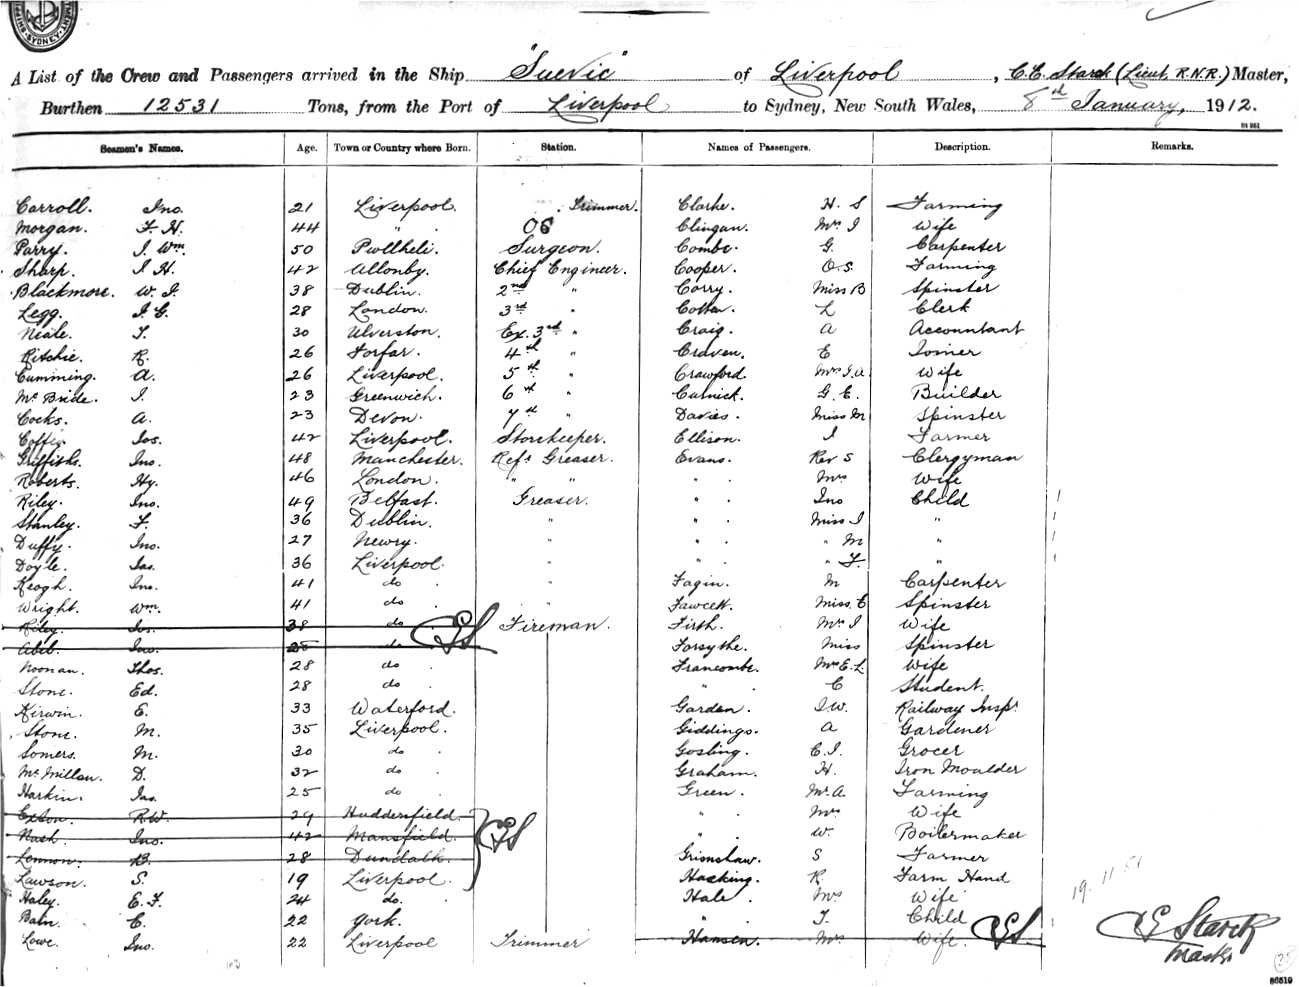 SYDNEY
A List of the Crew and Passengers arrived in the Ship "Suevic" of Liverpool, C.E. Starck (Lieut. R.N.R.) Master,
Burthen 12531 Tons, from the Port of Liverpool to Sydney, New South Wales, 8th January, 1912.
Seamen's Names. Age. Town or Country where Born. Station. Names of Passengers. Description. Remarks.
Carroll. Jno. 21 Liverpool. Trimmer. Clarke. H. S Farming
Morgan. F. H. 44 " OS Clingan. Mrs J Wife
Parry. J. Wm. 50 Pwllheli. Surgeon. Combe. G. Carpenter
Sharp. J H. 42 Allonby. Chief Engineer. Cooper. O.S. Farming
Blackmore. W. J. 38 Dublin. 2nd " Corry. Miss B Spinster
Legg. J. G. 28 London. 3rd " Cotton. L Clerk
Neale. T. 30 Ulverston. Ex. 3rd " Craig. A Accountant
Ritchie. R. 26 Forfar. 4th " Craven. E Joiner
Cumming. A. 26 Liverpool. 5th " Crawford. Mrs J. A. Wife
McBride. J. 23 Greenwich. 6th " G. E. Builder
Cocks. A. 23 Devon. 7th " Davies. Miss M Spinster
Jos. 42 Liverpool. Storekeeper. Ellison. J Farmer
Griffiths. Jno. 48 Manchester. Refg Greaser. Evans. Rev S Clergyman
Roberts. Hy. 46 London. " " " . Mrs Wife
Riley. Jno. 49 Belfast. Greaser. " . Jno Child
Stanley. F. 36 Dublin. " " . Miss J "
Duffy. Jno. 27 Newry. " " . " M "
Doyle. Jas. 36 Liverpool. " " . " F. "
Keogh. Jno. 41 do . " Fagin. M Carpenter
Wright. Wm. 41 do . " Fawcett. Miss E Spinster
Riley. Jos. 38 do CES Fireman. Firth. Mrs J Wife
Abel. Jno. 25 do . Forsythe. Miss Spinster
Noonan. Thos. 28 do . Francombe. Mrs E. L Wife
Stone. Ed. 28 do . " . C Student.
Kirwin. E. 33 Waterford. Garden. J.W. Railway Inspr
Stone. M. 35 Liverpool. Giddings. A Gardener
Somers. M. 30 do . Gosling. C. J. Grocer
McMillan. D. 32 do . Graham. H. Iron Moulder
Harkin. Jas. 25 do . Green. Mr A. Farming
Exton. R.W. 29 Huddersfield. " . Mrs Wife
Nash. Jno. 42 Mansfield. CES " . W. Boilermaker
Lennon. B. 28 Dundalk. Grimshaw. S Farmer
Lawson. S. 19 Liverpool. Hacking. R. Farm Hand
Haley. E. F. 24 do. Hale. Mrs Wife
Bain. C. 22 York. " . T. Child
Lowe. Jno. 22 Liverpool Trimmer Hansen. Mrs Wife. CES
19.11.51
CE Starck
Master
86519